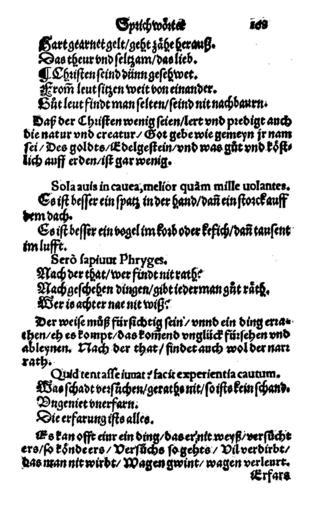 Sprichwörter 108
Hart gearnet gelt/ geht zähe herauß.
Das theur vnd seltzam/ das lieb.
¶ Christen seind dünn gesehwet.
From leut sitzen weit von einander.
Gůt leut findt man selten/ seind nit nachbaurn.
Daß der Christen wenig seien/ lert vnd predigt auch
die natur vnd creatur/ Got gebe wie gemeyn jr nam
sei/ Des goldts/ Edelgestein/ vnd was gůt vnd köst-
lich auff erden/ ist gar wenig.
Sola auis in cauea, melior quàm mille uolantes.
Es ist besser ein spatz in der hand/ dañ ein storck auff
dem dach.
Es ist besser ein vogel im korb oder kefich/ dañ tausent
im lufft.
Serò sapiunt Phryges.
Nach der that/ wer findt nit rath?
Nach geschehen dingen/ gibt iederman gůt räth.
Wer is achter nae nit wiß?
Der weise můß fürsichtig sein/ vnnd ein ding erra-
then/ eh es kompt/ das komend vnglück fürsehen vnd
ableynen. Nach der that/ findet auch wol der narr
rath.
Quid tentasse iuuat? facit experientia cautum.
Was schadt versůchen/ geraths nit/ so ists kein schand.
Vngeniet vnerfarn.
Die erfarung ists alles.
Es kan offt einr ein ding/ das er nit weyß/ versůcht
ers/ so köndeers/ Versůchs so gehts/ Vil verdirbt/
das man nit wirbt/ Wagen gwint/ wagen verleurt.
Erfars